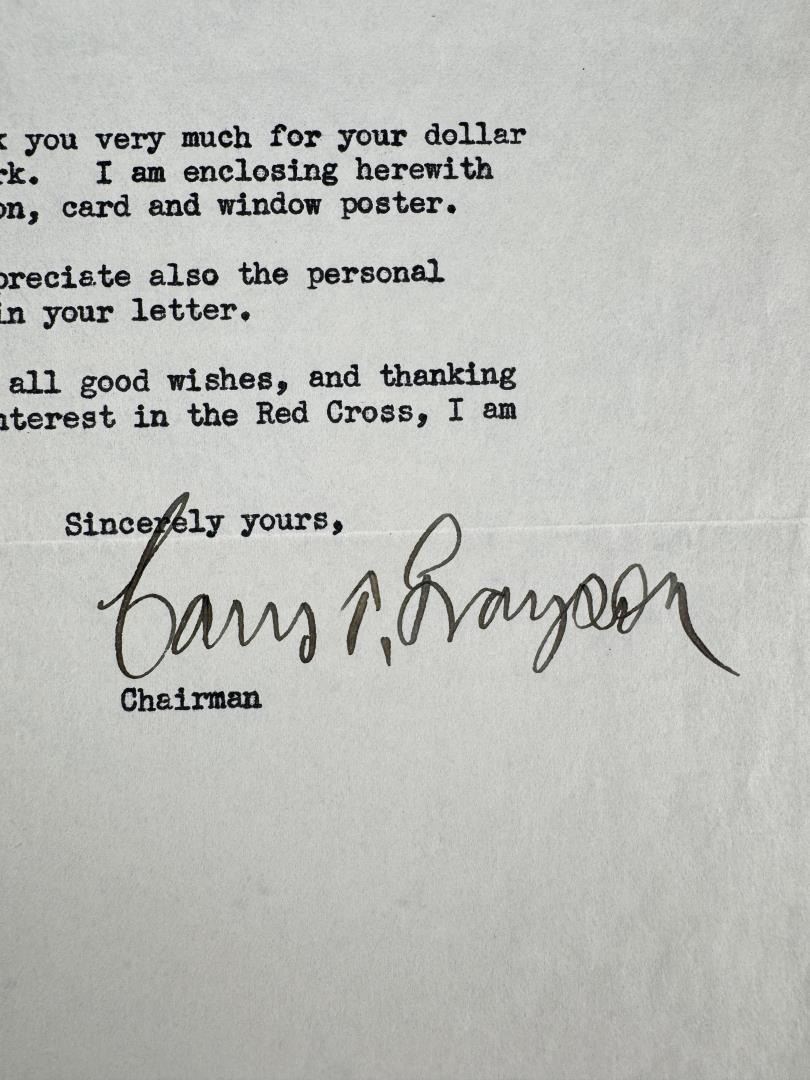 k you very much for your dollar
rk. I am enclosing herewith
on, card and window poster.
preciate also the personal
in your letter.
all good wishes, and thanking
nterest in the Red Cross, I am
Sincerely yours,
Cary T. Grayson
Chairman